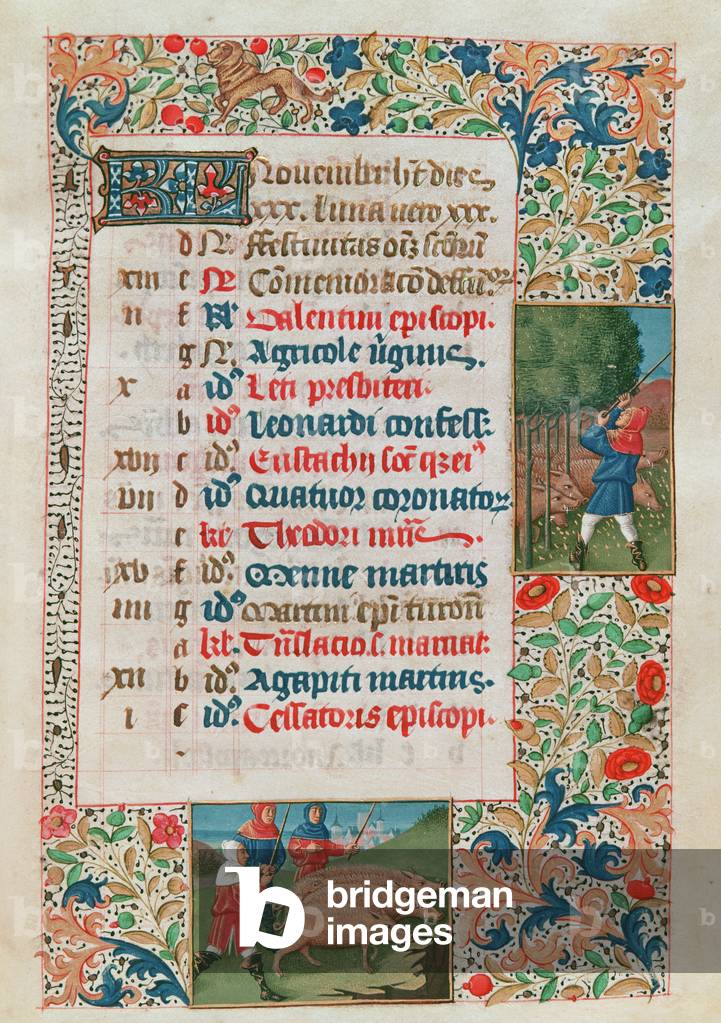 KL Nouembris ht dies
xxx. luna uero xxx.
d N. ffestiuitas oīz scōrū
xiii e N. Cōmemoracō defūc
ii f Valentini episcopi.
g N. Agricole ūginis.
x a id9 Leti presbiteri.
b id9 Leonardi confess
xvii c id9 Eustachii soc qz ei9
vii d id9 Quatuor coronator
e id9 Theodori mris.
xv f id9. Menne martiris
iiii g id9 Martini epi turon
a kl. Tnslacio s. martial
xii b id9. Agapiti martiris.
i c id9. Cessatoris episcopi.
bridgeman
images